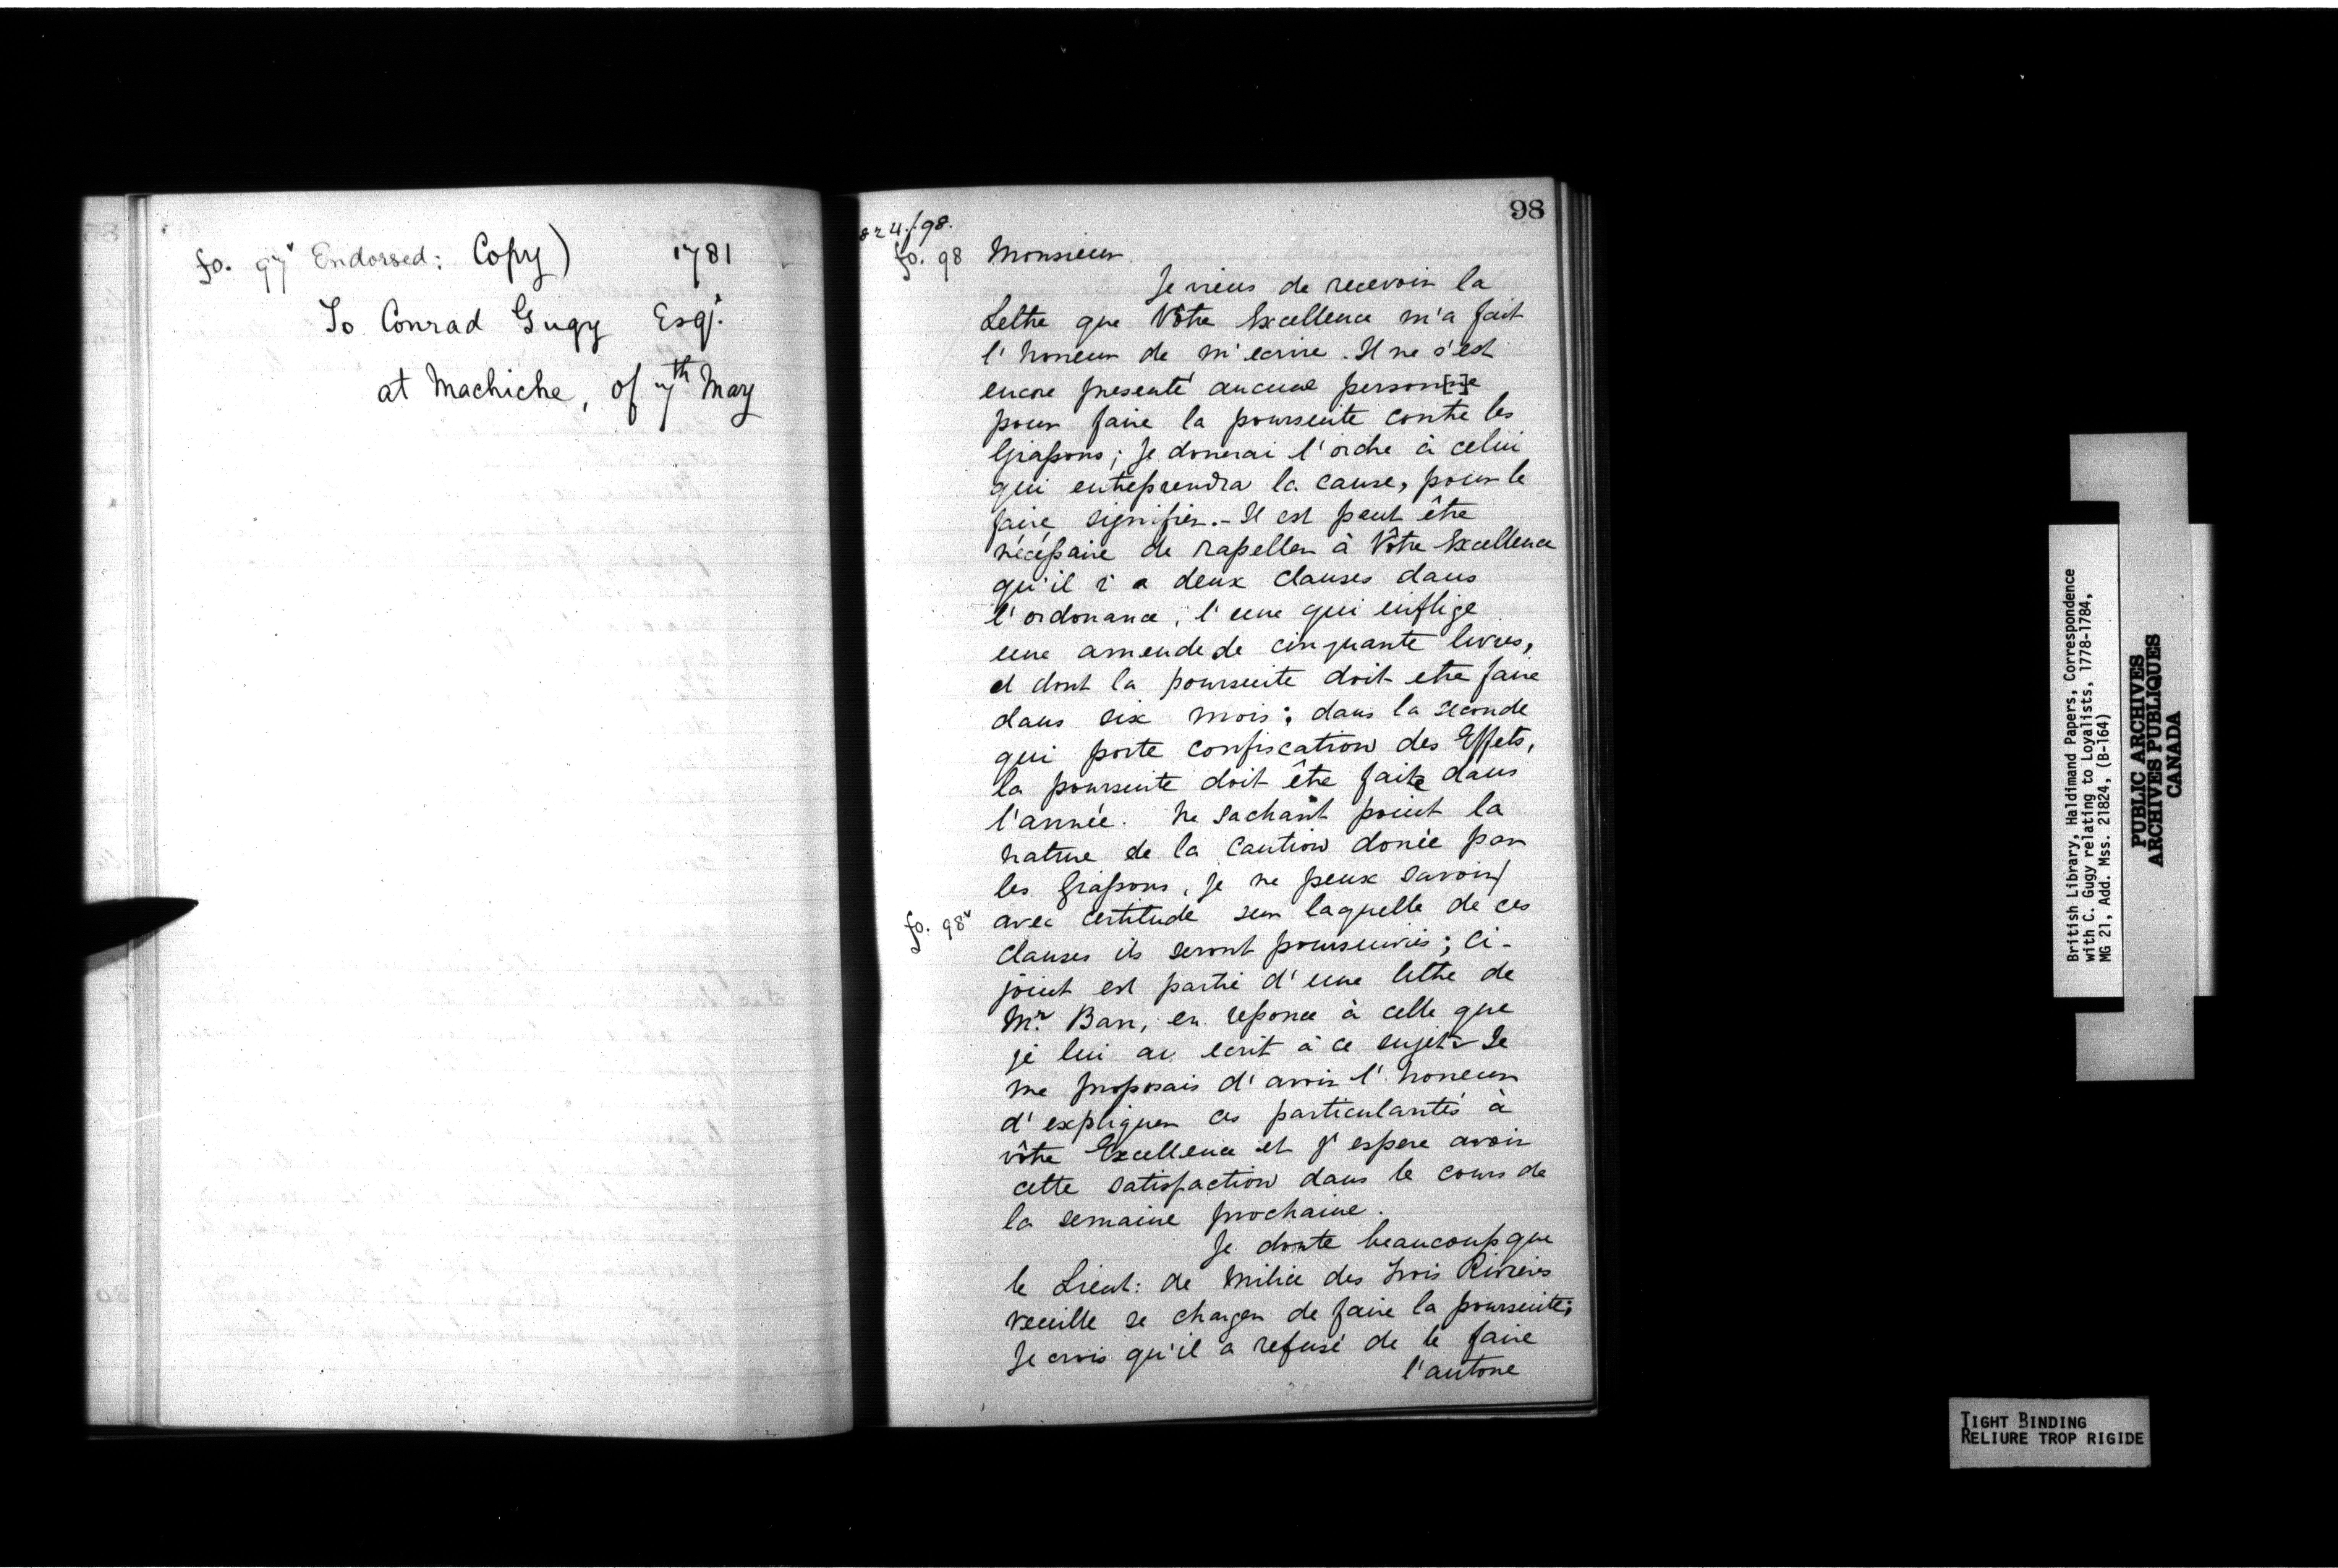 fo. 97v Endorsed: Copy) 1781
To Conrad Gugy Esqr.
at Machiche, of 7th May
98
824.f.98.
fo. 98 Monsieur
Je viens de recevoir la
Lettre que Vôtre Excellence m'a fait
l'honeur de m'ecrire. Il ne s'est
encore presenté aucune person[n]e
pour faire la poursuite contre les
Graſsons; Je donerai l'ordre à celui
qui entreprendra la cause, pour le
faire signifier.- Il est peut être
nécéſsaire de rapeller à Vôtre Excellence
qu'il i a deux clauses dans
l'ordonance, l'une qui inflige
une amende de cinquante livres,
et dont la poursuite doit etre faire
dans six mois; dans la seconde
qui porte confiscation des Effets,
la poursuite doit être faite dans
l'année. Ne sachant point la
nature de la Caution donée par
les Graſsons, je ne peux savoir/
fo. 98v avec certitude sur laquelle de ces
clauses ils seront poursuivis; ci-
joint est partie d'une lettre de
Mr. Barr, en reponce à celle que
je lui ai ecrit à ce sujet - Je
me proposais d'avoir l'honeur
d'expliquer ces particularités à
vôtre Excellence et J'espere avoir
cette satisfaction dans le cours de
la semaine prochaine.
Je doute beaucoup que
le Lieut: de Milice des Trois Rivieres
veuille se charger de faire la poursuite;
Je crois qu'il a refusé de le faire
l'autone
British Library, Haldimand Papers, Correspondence
with C. Gugy relating to Loyalists, 1778-1784,
MG 21, Add. Mss. 21824, (B-164)
PUBLIC ARCHIVES
ARCHIVES PUBLIQUES
CANADA
TIGHT BINDING
RELIURE TROP RIGIDE